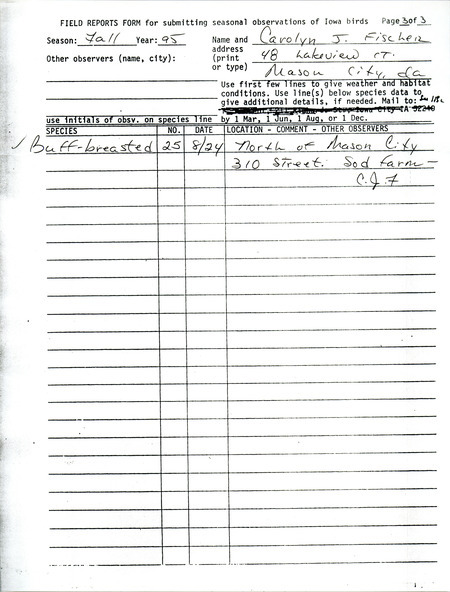 FIELD REPORTS FORM for submitting seasonal observations of Iowa birds Page 3 of 3
Season: Fall Year: 95 Name and Carolyn J. Fischer
address 48 Lakeview CT.
Other observers (name, city): (print
or type) Mason City, Ia
Use first few lines to give weather and habitat
conditions. Use line(s) below species data to
give additional details, if needed. Mail to:
Iowa City IA 52240
use initials of obsv. on species line by 1 Mar, 1 Jun, 1 Aug, or 1 Dec.
SPECIES NO. DATE LOCATION - COMMENT - OTHER OBSERVERS
✓ Buff-breasted 25 8/24 North of Mason City
310 Street. Sod Farm -
C.J.F